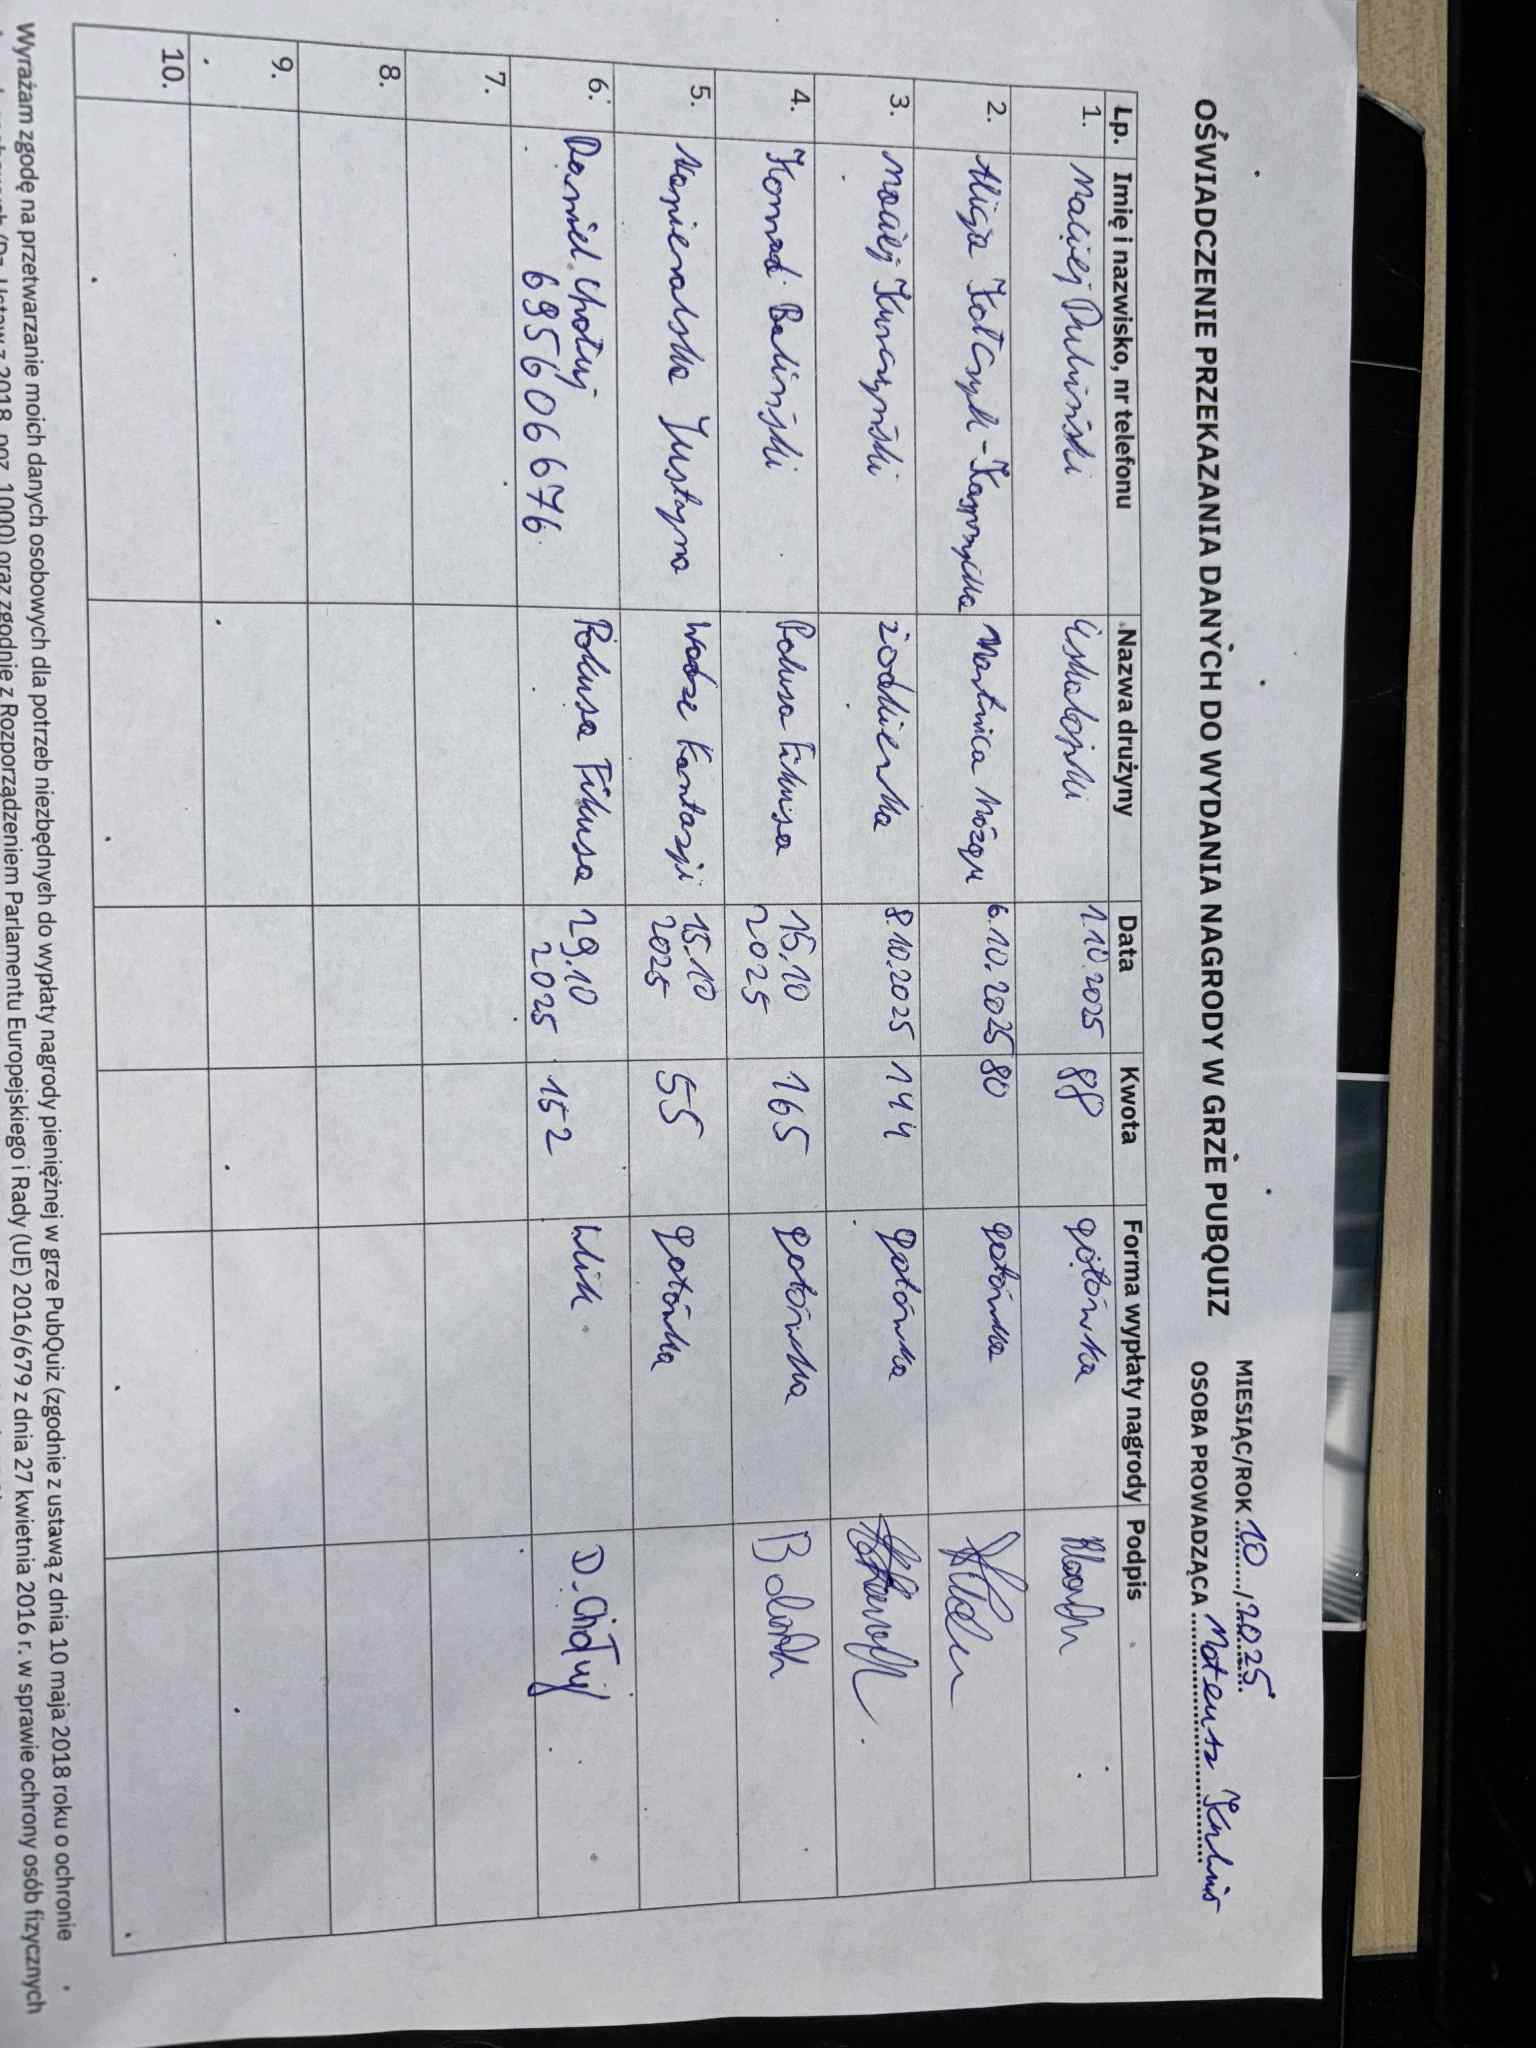 MIESIĄC/ROK 10 / 2025
OŚWIADCZENIE PRZEKAZANIA DANYCH DO WYDANIA NAGRODY W GRZE PUBQUIZ
OSOBA PROWADZĄCA Mateusz
Lp. Imię i nazwisko, nr telefonu Nazwa drużyny Data Kwota Forma wypłaty nagrody Podpis
1. Maciej 1.10.2025 88 gotówka
2. Alicja Kołczyk-Kasprzycka Martwica Mózgu 6.10.2025 80 gotówka
3. Maciej Kurczyński żodkiewka 8.10.2025 144 gotówka
4. Konrad Baliński Pokusa Fikusa 15.10 165 gotówka
2025
5. Napieralska Justyna Wodze Kantazji 15.10 55 gotówka
2025
6. Daniel Chołuj Pokusa Fikusa 29.10 152 blik D. Chołuj
695606676 2025
7.
8.
9.
10.
Wyrażam zgodę na przetwarzanie moich danych osobowych dla potrzeb niezbędnych do wypłaty nagrody pieniężnej w grze PubQuiz (zgodnie z ustawą z dnia 10 maja 2018 roku o ochronie
(Dz. Ustaw z 2018, poz. 1000) oraz zgodnie z Rozporządzeniem Parlamentu Europejskiego i Rady (UE) 2016/679 z dnia 27 kwietnia 2016 r. w sprawie ochrony osób fizycznych